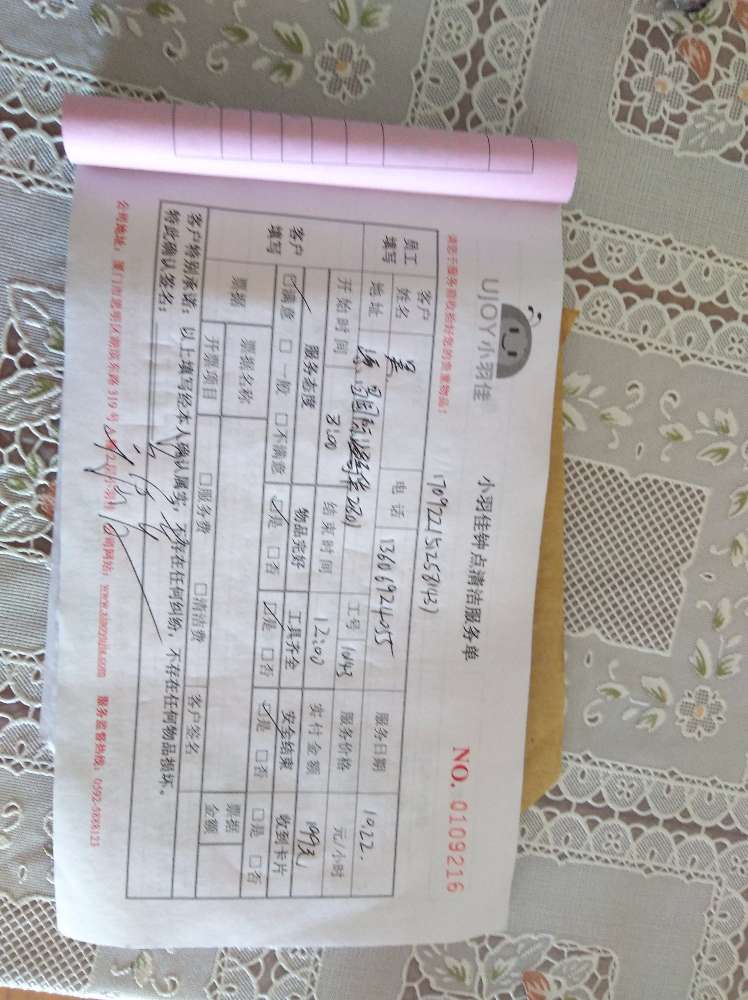 UJOY小羽佳
小羽佳钟点清洁服务单
NO. 0109216
请您于服务前收拾好您的贵重物品!
员工填写
客户姓名
吴
电话
13606924055
服务日期
10.22.
地址
2601
工号
1043
服务价格
元/小时
开始时间
8:00
结束时间
12:00
实付金额
客户填写
服务态度
物品完好
工具齐全
安全结束
收到卡片
☑满意 □一般 □不满意
☑是 □否
☑是 □否
☑是 □否
□是 □否
票据
票据名称
票据金额
开票项目
□服务费 □清洁费
客户特别承诺:以上填写经本人确认属实,不存在任何纠纷,不存在任何物品损坏。
特此确认签名:
客户签名
公司地址:厦门市思明区湖滨东路319号
公司网站:www.xiaoyujia.com
服务监督热线:0592-5888123